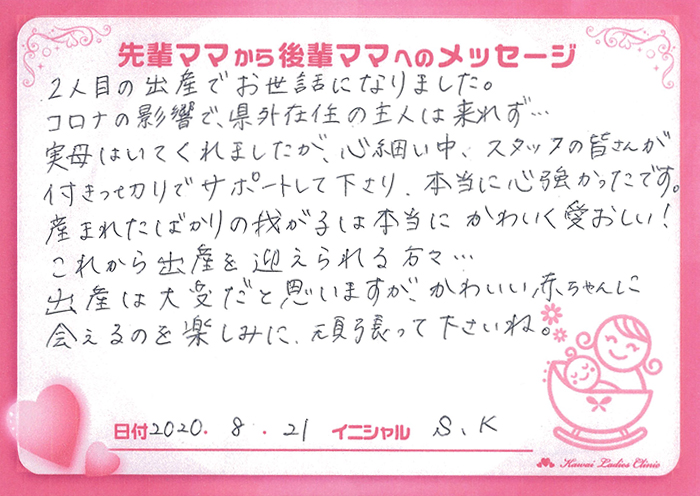 先輩ママから後輩ママへのメッセージ
2人目の出産でお世話になりました。
コロナの影響で、県外在住の主人は来れず…
実母はいてくれましたが、心細い中、スタッフの皆さんが
付きっ切りでサポートして下さり、本当に心強かったです。
産まれたばかりの我が子は本当にかわいく愛おしい!
これから出産を迎えられる方々…
出産は大変だと思いますが、かわいい赤ちゃんに
会えるのを楽しみに、頑張って下さいね。
日付2020.8.21 イニシャル S、K
Kawai Ladies Clinic